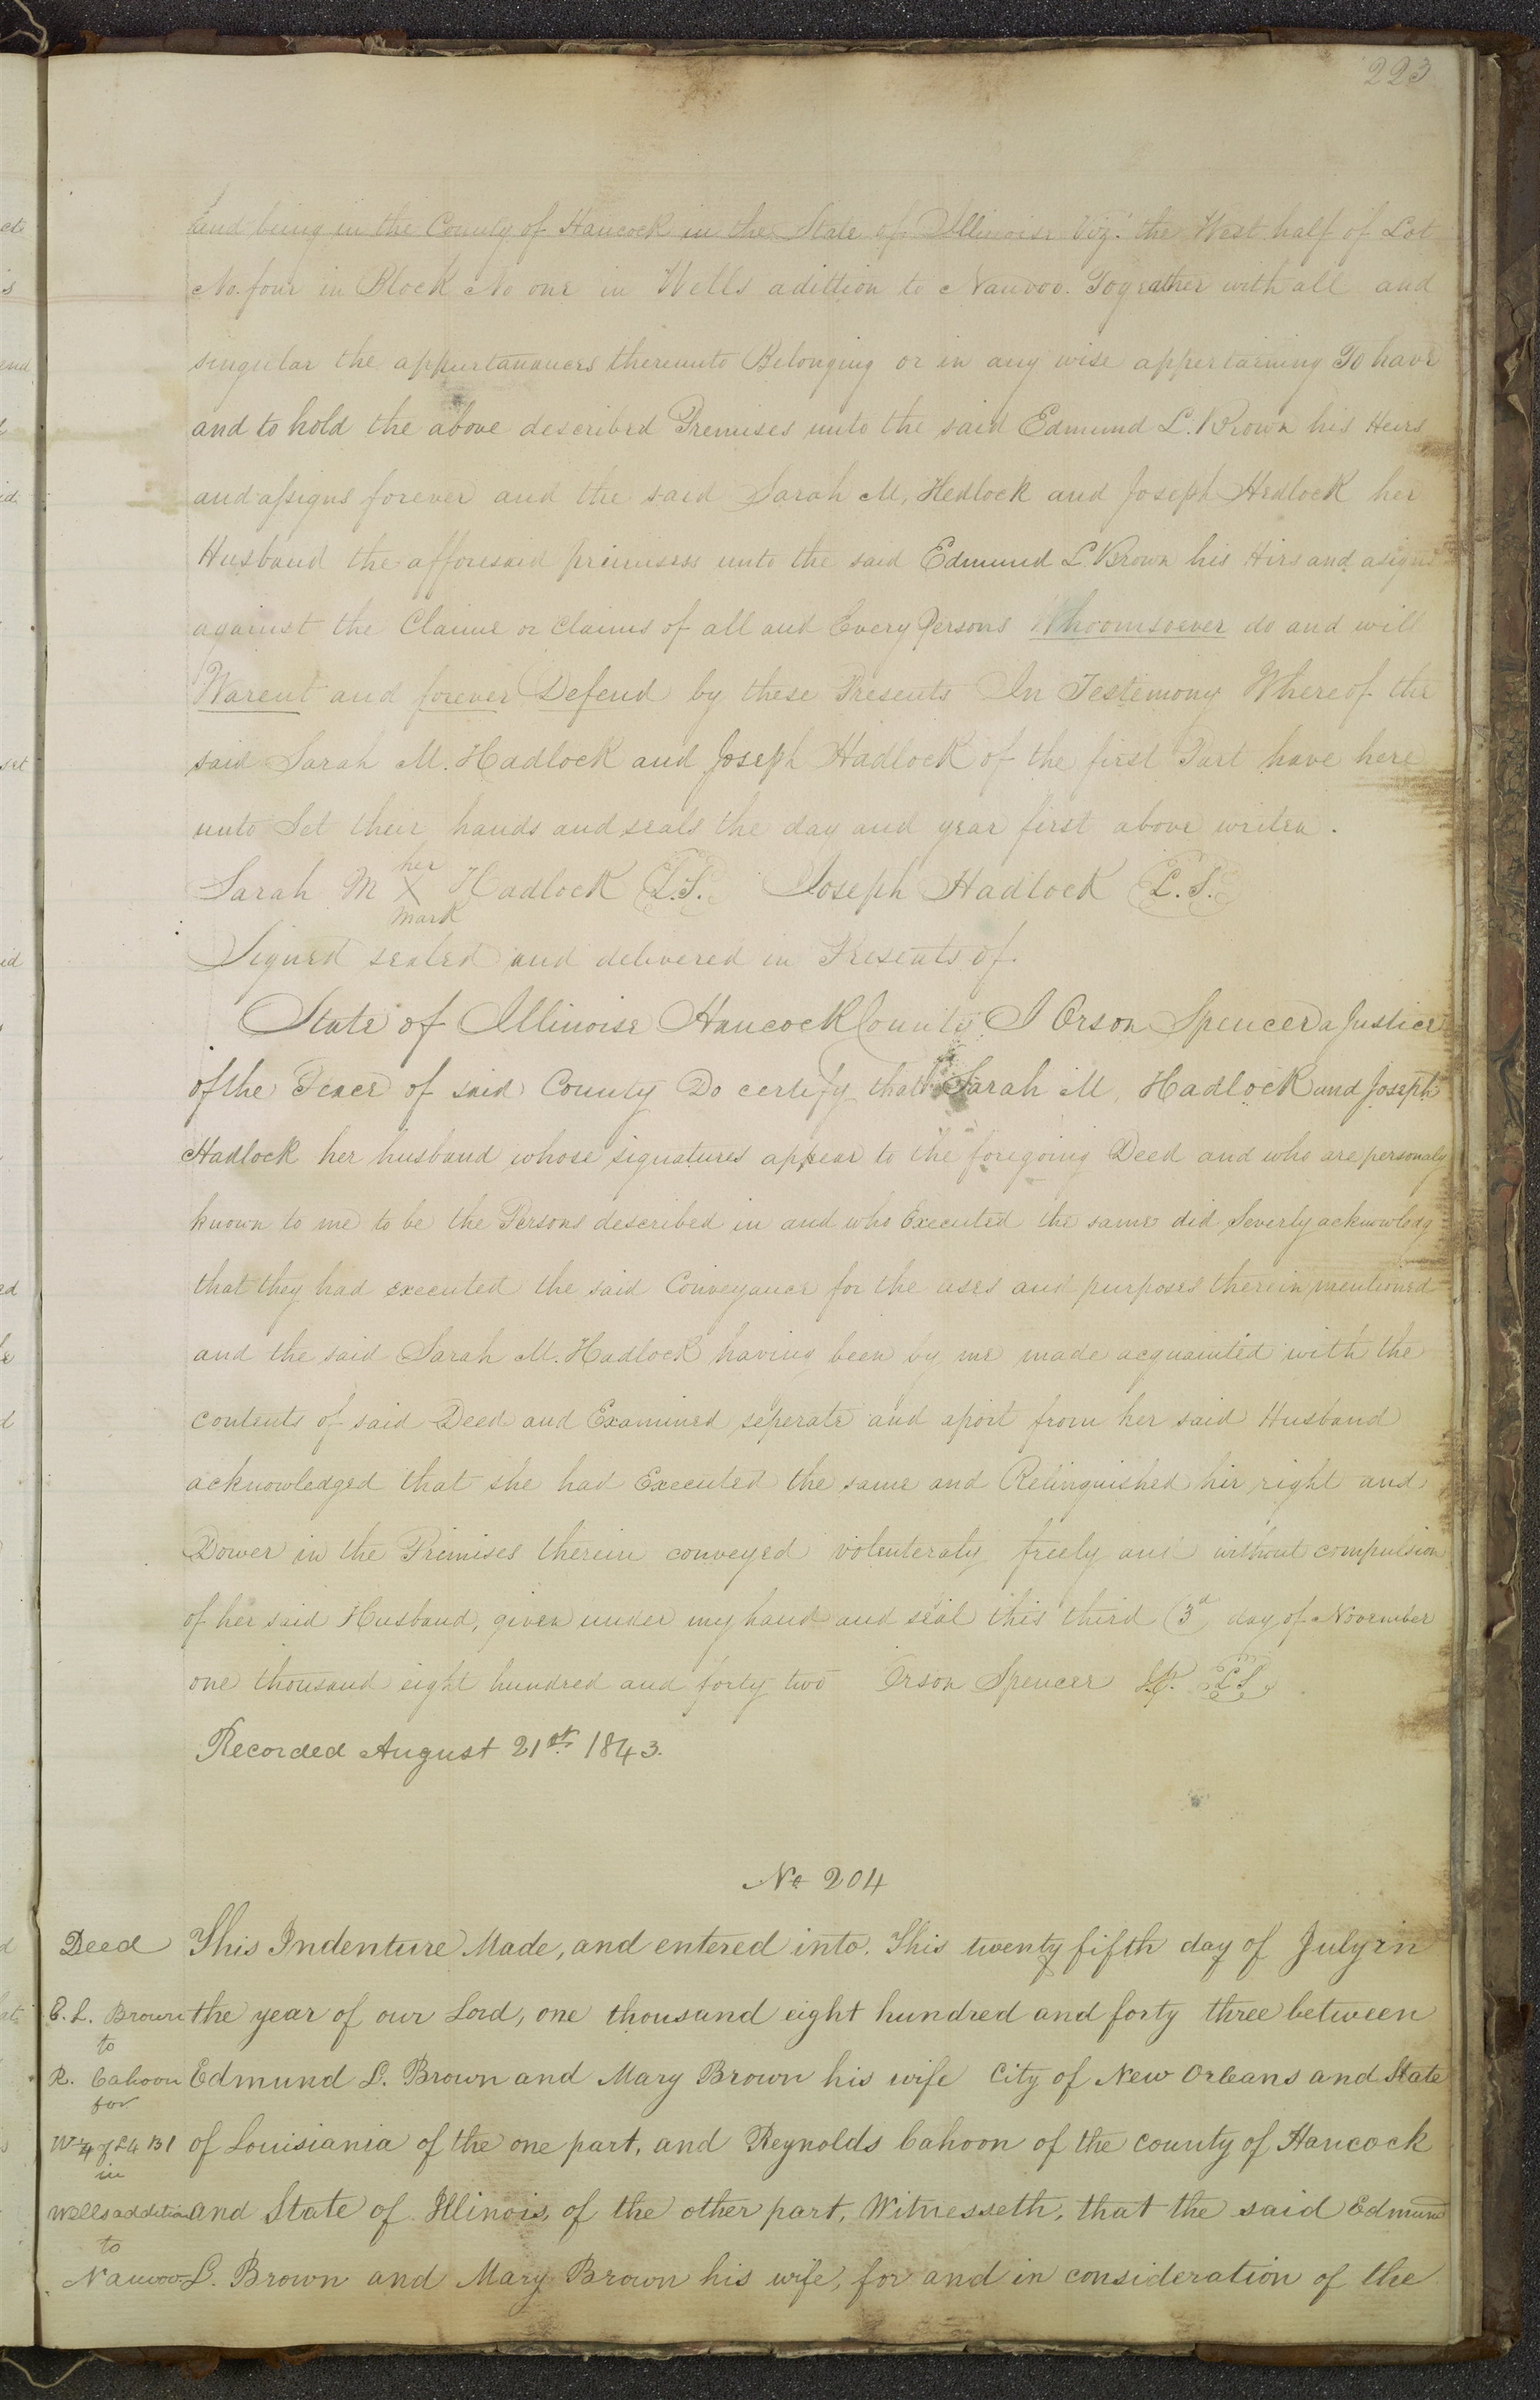 223
and being in the County of Hancock in the State of Illinoise Viz: the West half of Lot
No. four in Block No one in Wells adittion to Nauvoo. Togeather with all and
singular the appurtanances thereunto Belonging or in any wise appertaining To have
and to hold the above described Premises unto the said Edmund L. Brown his Heirs
and assigns forever and the said Sarah M, Hedlock and Joseph Hedlock her
Husband the afforesaid primisess unto the said Edmund L Brown his Hirs and asigns
against the Claime or Claims of all and Every Persons Whoomsoever do and will
Warent and forever Defend by these Presents In Testemony Whereof the
said Sarah M. Hadlock and Joseph Hadlock of the first Part have here
unto Set their hands and seals the day and year first above writen.
her
Sarah M X Hadlock L.S. Joseph Hadlock L.S.
mark
Signed sealed and delivered in Presents of.
State of Illinoise Hancock County I Orson Spencer a Justice
of the Peace of said County Do certify that Sarah M, Hadlock and Joseph
Hadlock her husband whose signatures appear to the foregoing Deed and who are personaly
known to me to be the Persons described in and who Executed the same did Severly acknowledg
that they had executed the said Conveyance for the uses and purposes therein mentioned
and the said Sarah M. Hadlock having been by me made acquainted with the
contents of said Deed and Examined seperate and apart from her said Husband
acknowledged that she had Executed the same and Relinguished hir right and
Dower in the Primises therein conveyed volenteraly freely and without compulsion
of her said Husband, given under my hand and seal this third (3d day of November
one thousand eight hundred and forty two Orson Spencer J.P. L.S.
Recorded August 21st 1843.
No 204
Deed This Indenture Made, and entered into. This twenty fifth day of July in
E. L. Brown the year of our Lord, one thousand eight hundred and forty three between
to
R. Cahoon Edmund L. Brown and Mary Brown his wife City of New Orleans and State
for
of Louisiania of the one part, and Reynolds Cahoon of the county of Hancock
in
Wells addition and State of Illinois, of the other part, Witnesseth, that the said Edmund
to
Nauvoo L. Brown and Mary Brown his wife, for and in consideration of the